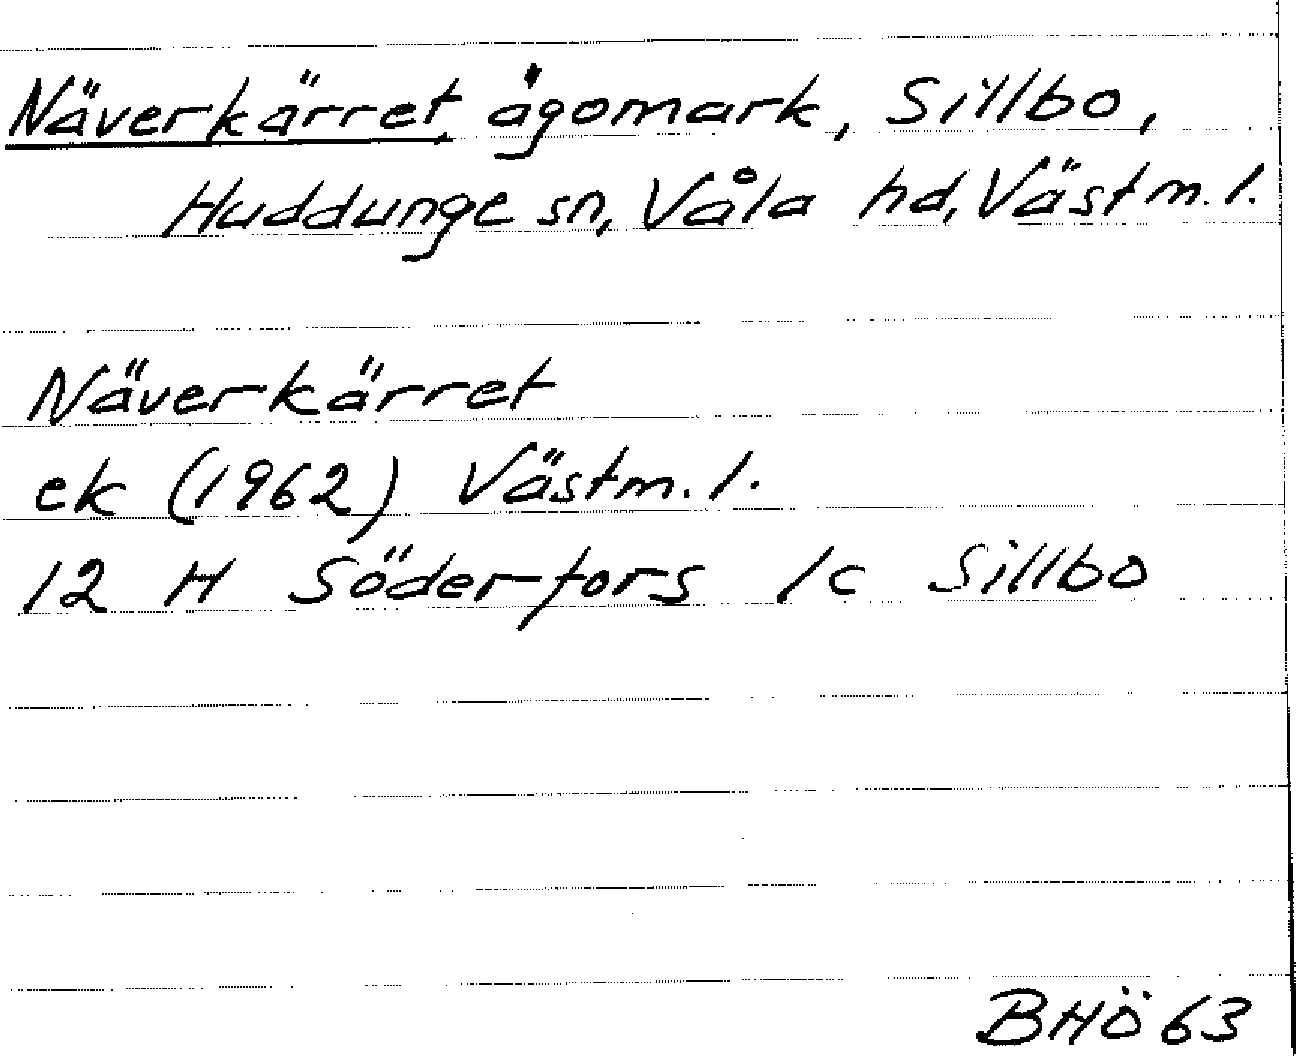 Näverkärret, ägomark, Sillbo,
Huddunge sn, Våla hd, Västm. l.
Näverkärret
ek (1962) Västm. l.
12 H Söderfors 1c Sillbo
BHÖ 63